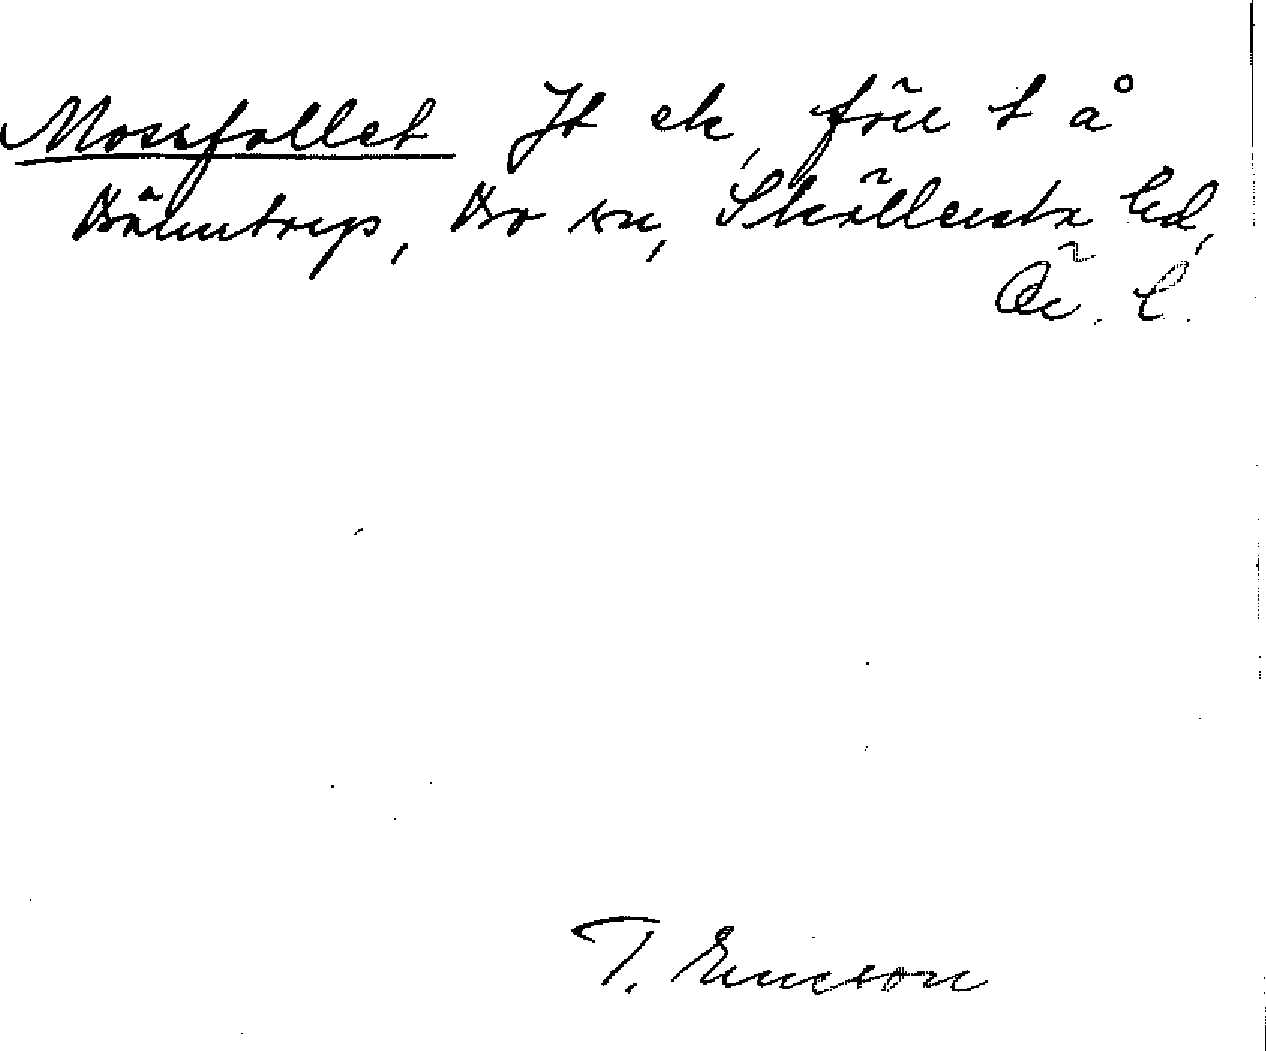 Mossfallet Jt ek, förr t å
Bälmtorp, Bo sn, Skyllersta hd,
Ör. l.
T. Ericsson